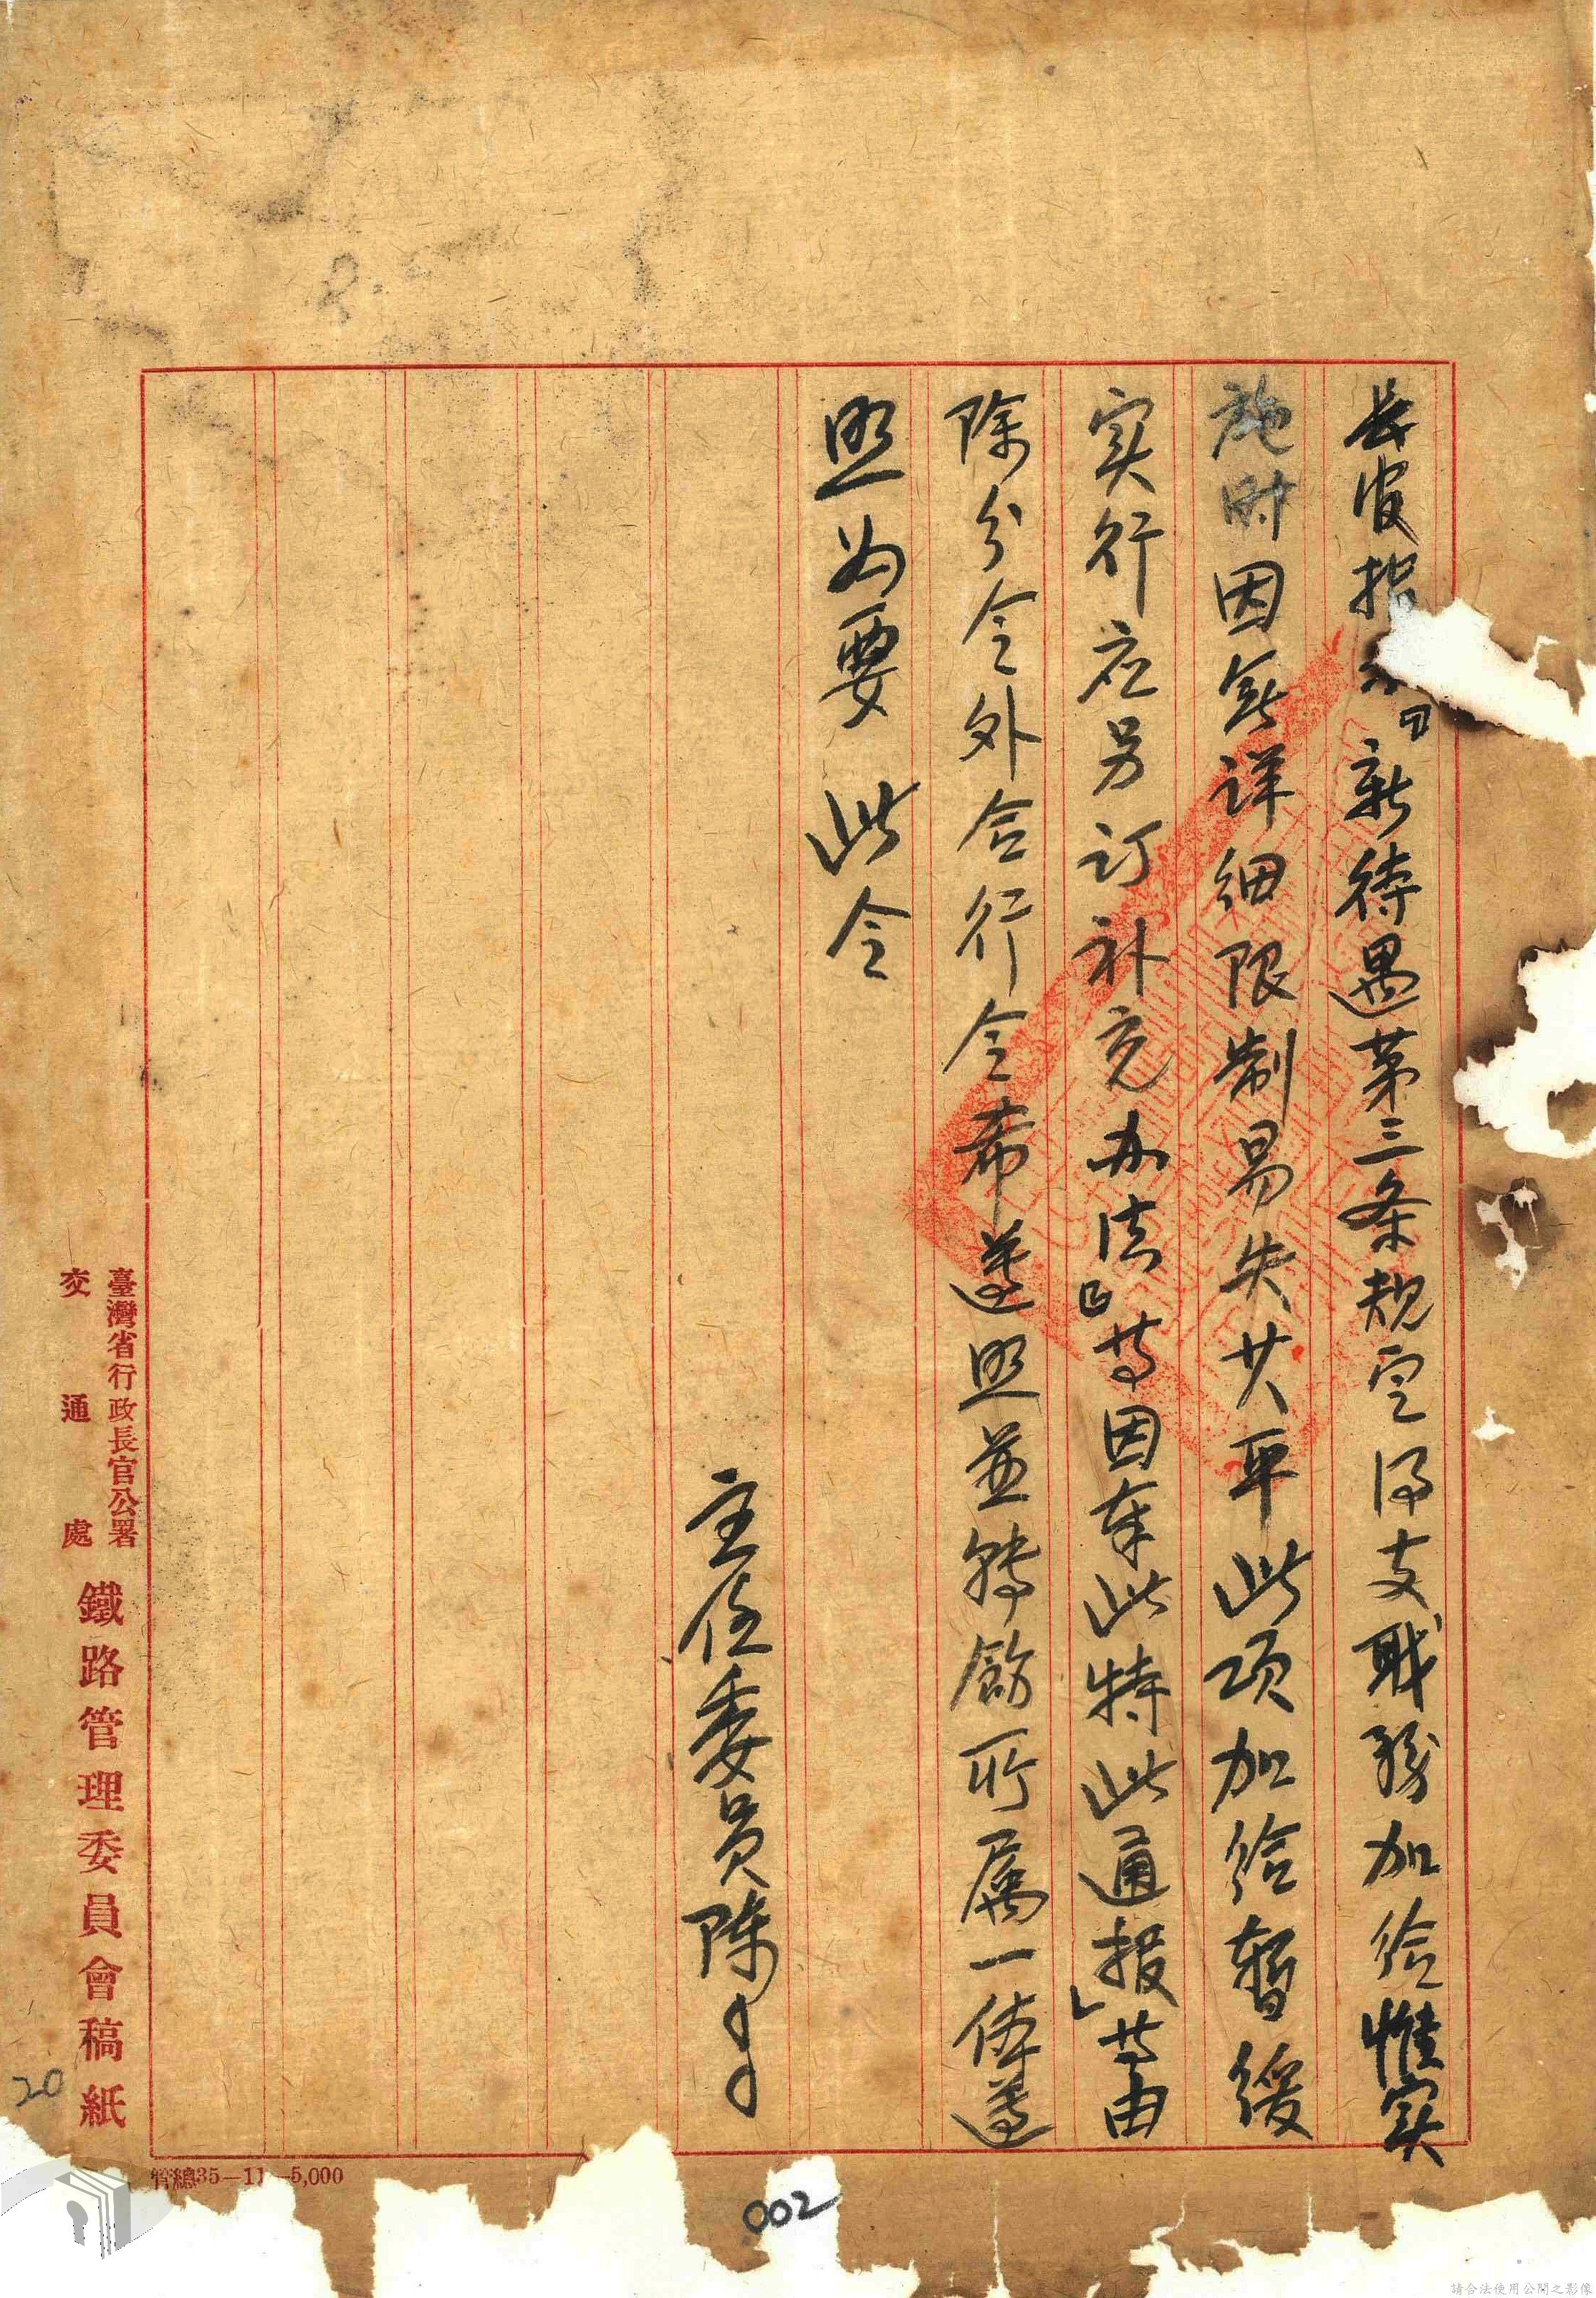 長官指示『新待遇第三条規定得支職務加给惟实
施时因無详细限制易失公平此项加给暫缓
实行应另订补充办法』等因奉此特此通报」等由
除分令外合行令希遵照並转飭所属一体遵
照为要 此令
主任委員陈
臺灣省行政長官公署
交通處
鐵路管理委員會稿紙
管總35—11—5,000
20
002
請合法使用公開之影像